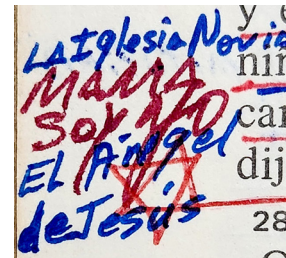 LA Iglesia Novia
MAMA
SOY YO
EL Ángel
de Jesús
y e
nin
car
dij
28